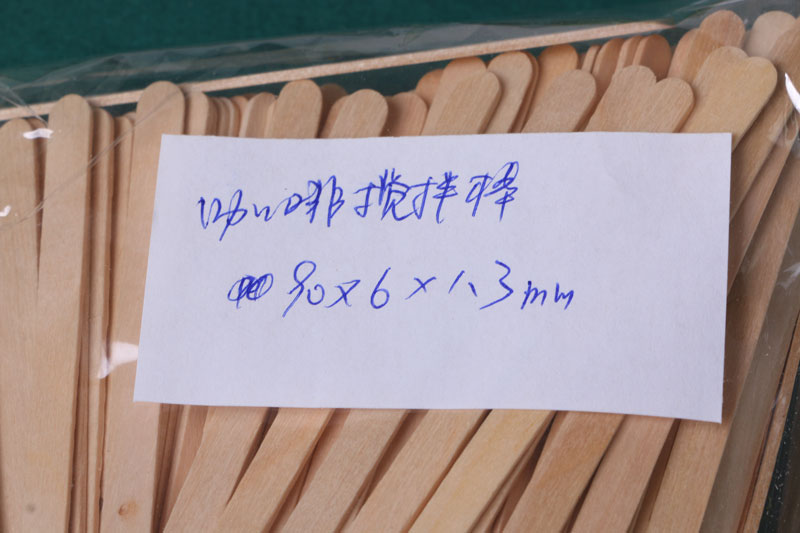 咖啡搅拌棒
90×6×1.3mm